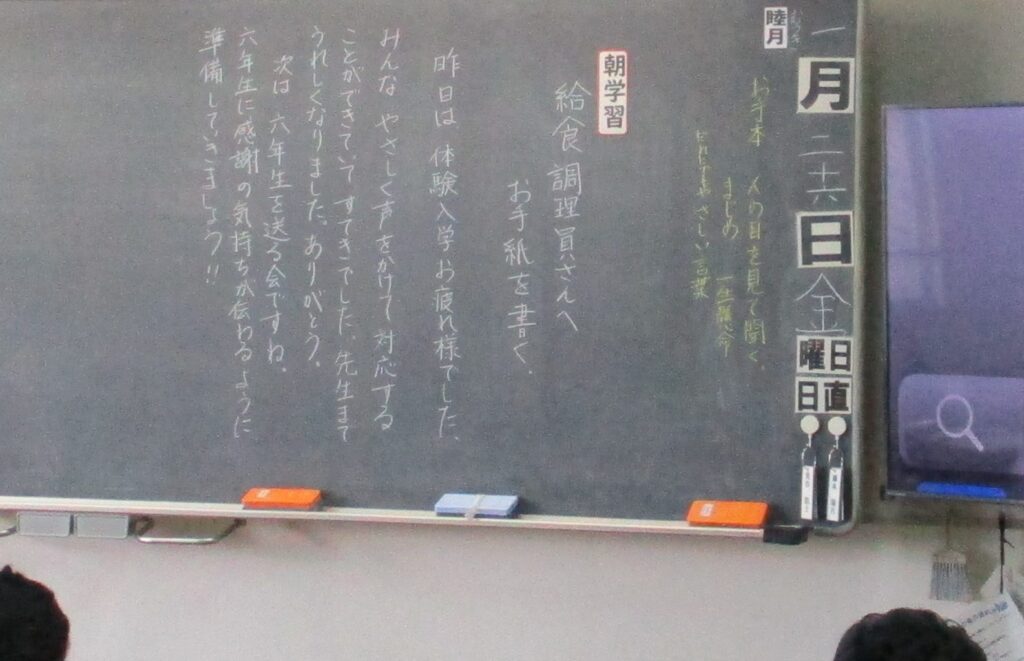 睦月
むつき
一月二十六日金曜日
日直
お手本 人の目を見て聞く。
まじめ 一生懸命
だれにでもやさしい言葉
朝学習
給食調理員さんへ
お手紙を書く。
昨日は、体験入学お疲れ様でした。
みんな やさしく声をかけて 対応する
ことができていて すてきでした。先生まで
うれしくなりました。ありがとう。
次は、六年生を送る会ですね。
六年生に感謝の気持ちが伝わるように
準備していきましょう!!